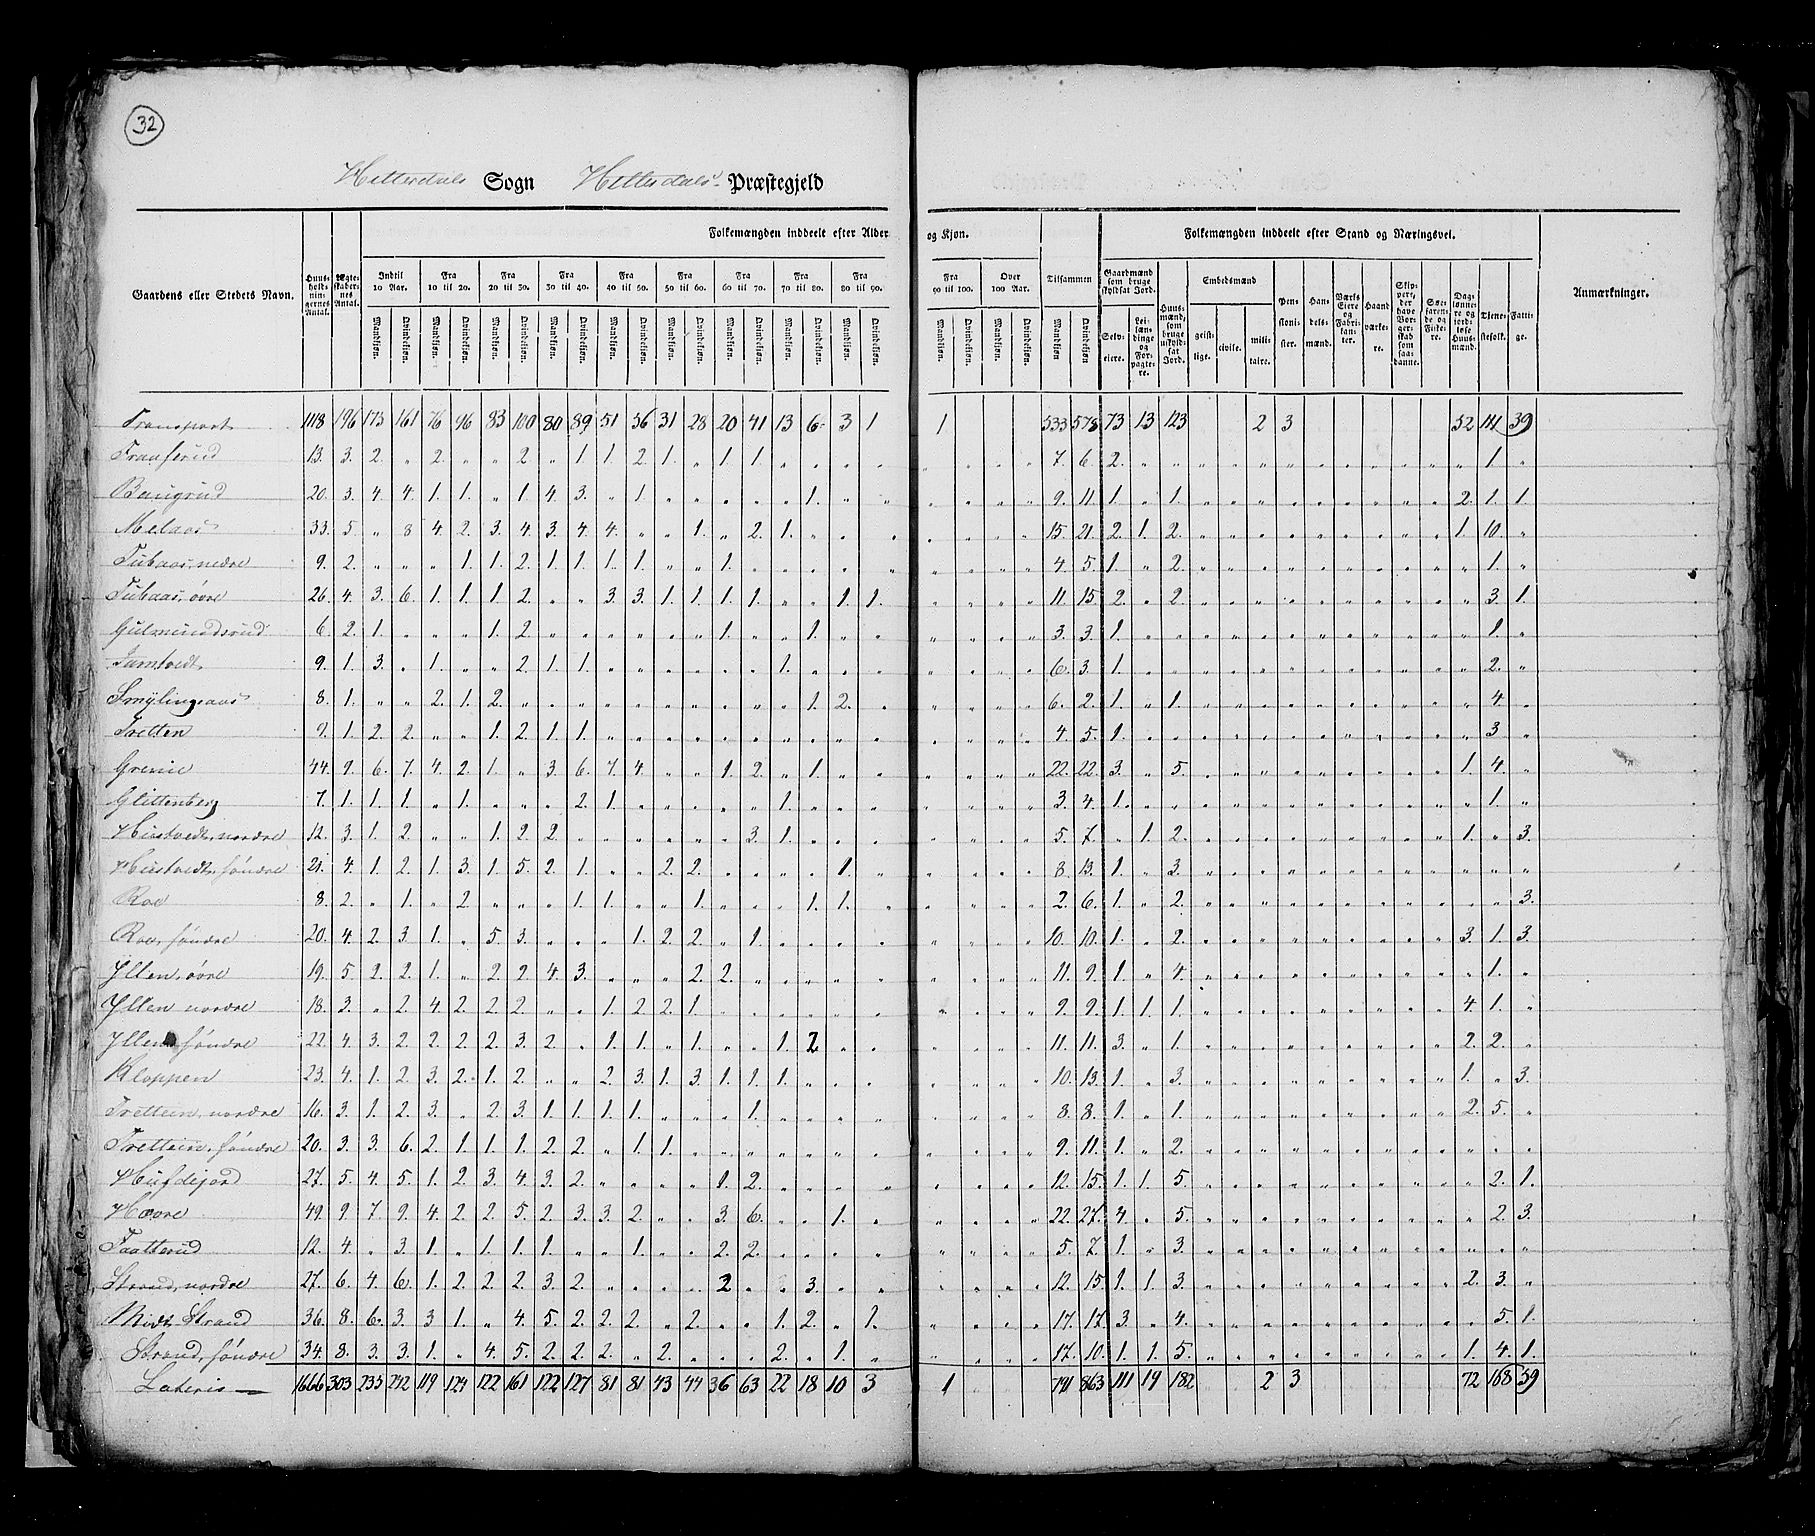 32
Hitterdals Sogn Hitterdals Præstegjeld
Folkemængden inddeelt efter Alder og Kjøn. Folkemængden inddeelt efter Stand og Næringsvei.
Gaardens eller Stedets Navn. Huusholdningernes Antal. Ægteskabernes Antal. Indtil 10 Aar. Fra 10 til 20. Fra 20 til 30. Fra 30 til 40. Fra 40 til 50. Fra 50 til 60. Fra 60 til 70. Fra 70 til 80. Fra 80 til 90. Fra 90 til 100. Over 100 Aar. Tilsammen Gaardmænd som bruge skyldsat Jord. Huusmænd, som bruge uskyldsat Jord. Embedsmænd Pensionister. Handelsmænd. Værks Eiere og Fabrikanter. Haandværkere. Skippere, der have Borgerskab som saadanne. Søefarende og Fiskere. Daglønnere og jordløse Huusmænd. Tjenestefolk. Fattige. Anmærkninger.
Mandkjøn. Qvindekjøn. Mandkjøn. Qvindekjøn. Mandkjøn. Qvindekjøn. Mandkjøn. Qvindekjøn. Mandkjøn. Qvindekjøn. Mandkjøn. Qvindekjøn. Mandkjøn. Qvindekjøn. Mandkjøn. Qvindekjøn. Mandkjøn. Qvindekjøn. Mandkjøn. Qvindekjøn. Mandkjøn. Qvindekjøn. Mandkjøn Qvindekjøn. Selveiere. Leilændinge og Forpagtere. geistlige. civile. militaire.
Transport 1118 196 173 161 76 96 83 100 80 89 51 56 31 28 20 41 13 6 3 1 1 533 578 73 13 123 2 3 52 111 39
13. 3. 2. „ 2. „ „ 2. „ 1 1. 2. 1. „ 1. 1. „ „ „ „ 7. 6. 2. „ „ „ 1. „
Baugrud 20. 3. 4. 4. 1. 1. „ 1 4. 3. „ 1. „ „ „ „ „ 1. „ „ 9. 11. 1. „ 1. 2. 1. 1
Melaas 33. 5. „ 8 4. 2. 3. 4. 3. 4. 4. „ „ 1. „ 2. 1. „ „ „ 15. 21. 2. 1. 2. 1. 10. „
Tubaas, nedre 9. 2. „ „ „ 1. 1. 2. 1. 1. 1. 1. „ „ 1. „ „ „ „ „ 4. 5. 1. „ 2. „ 1. „
Tubaas, øvre 26. 4. 3. 6. 1. 1. 1. 2. „ „ 3. 3. 1. 1. 1. 1. „ „ 1. 1. 11. 15. 2. „ 2. „ 3. 1.
Gulmundsrud 6. 2. 1. „ „ „ 1. 2. „ „ „ „ „ „ 1. „ „ 1. „ „ 3. 3. 1. „ „ „ 1. „
9. 1. 3. „ 1. „ „ 2. 1. 1. „ „ „ „ „ „ 1. „ „ „ 6. 3. 1. „ „ „ 2. „
8. 1. „ „ 2. 1. 2. „ „ „ „ „ „ „ „ „ „ 1. 2. „ 6. 2. 1. „ 1. „ 4. „
Tretten 9. 1. 2. 2. „ „ 1. 2. 1. 1. „ „ „ „ „ „ „ „ „ „ 4. 5. 1. „ „ „ 3. „
Grenie 44. 9. 6. 7. 4. 2. 1. „ 3. 6. 7. 4. „ „ 1. 2. „ 1. „ „ 22. 22. 3. „ 5. 1. 4. „
Glittenberg 7. 1. 1. 1. „ 1. „ „ „ 2. 1. „ „ „ „ „ 1. „ „ „ 3. 4. 1. „ „ „ 1. „
Hustvedt, nordre 12. 3. 1. 2. „ „ 1. 2. 2. „ „ „ „ „ „ 3. 1. „ „ „ 5. 7. „ 1. 2. 1. „ 3.
Hustvedt, søndre 21. 4. 1. 2. 1. 3. 1. 5. 2. 1. „ „ 2. 2. „ „ „ „ 1. „ 8. 13. 1. „ 3. „ „ „
Roe 8. 2. „ 1. „ 2. „ „ „ 1. 1. „ „ 1. „ „ „ 1. 1. „ 2. 6. 1. „ 2. „ „ 3.
Roe, søndre 20. 4. 2. 3. 1. „ 5. 3. „ „ „ 1. 2. 2. „ 1. „ „ „ „ 10. 10. 1. „ 2. 3. 1. 3.
Yllen, øvre 19. 5. 2. 2. 1. „ 2. 2. 4. 3. „ „ „ 2. 2. „ „ „ „ „ 11. 9. 1. „ 4. „ 1. „
Yllen nordre 18. 3. „ 2. 4. 2. 2. 2. „ „ 1. 2. 2. 1. „ „ „ „ „ „ 9. 9. 1. 1. 1. 4. 1. „
Yllen søndre 22. 4. 3. 2. 2. 2. 2. 3. 2. „ 1. 1. „ 1. „ „ 1. 2 „ „ 11. 11. 3. „ 1. 2. 2. „
Kloppen 23. 4. 1. 2. 3. 2. 1. 2. „ „ 2. 3. 1. 3. 1. 1. 1. „ „ „ 10. 13. 1. „ 3. 1. „ 3.
Trettein, nordre 16. 3. 1. 2. 3. „ 2. 3. 1. 1. 1. 1. „ „ „ 1. „ „ „ „ 8. 8. 1. „ 1. 2. 5. „
Trettein, søndre 20. 3. 3. 6. 2. 1. 1. 1. 2. 2. „ 1. 1. „ „ „ „ „ „ „ 9. 11. 1. „ 2. „ „ „
27. 5. 4. 5. 1. 2. 3. 4. 3. 2. „ „ „ „ 1. 2. „ „ „ „ 12. 15. 1. 1. 5. „ 2. 1.
Hovre 49. 9. 7. 9. 4. 2. 2. 5. 2. 3. 3. 2. „ „ 3. 6. „ „ 1. „ 22. 27. 4. „ 5. „ 2. 3.
Taatterud 12. 4. „ 3. 1. „ 1. 1. 1. „ „ 1. „ „ 2. 2. „ „ „ „ 5. 7. 1. „ 3. „ „ „
Strand, nordre 27. 6. 4. 6. 1. 2. 2. 2. 3. 2. „ „ „ „ 2 „ „ 3. „ „ 12. 15. 1. 1. 3. 2. 3. „
Midt Strand 36. 8. 6. 3. 3 1. „ 4. 5. 2. 2. 2. „ 2. „ „ 1. 2. „ 1. 17. 17. 3. „ 4. „ 5. 1.
Strand, søndre 34. 8. 3. 3. 1. „ 4. 5. 2. 2. 2. „ 2. „ „ „ 2. „ 1. „ 17. 10. 1. 1. 5. 1. 4. 1.
Lateris 1666 303 233 242 119 124 122 161 122 127 81 81 43 44 36 63 22 18 10 3 1 791 863 111 19 182 2 3 72 168 59